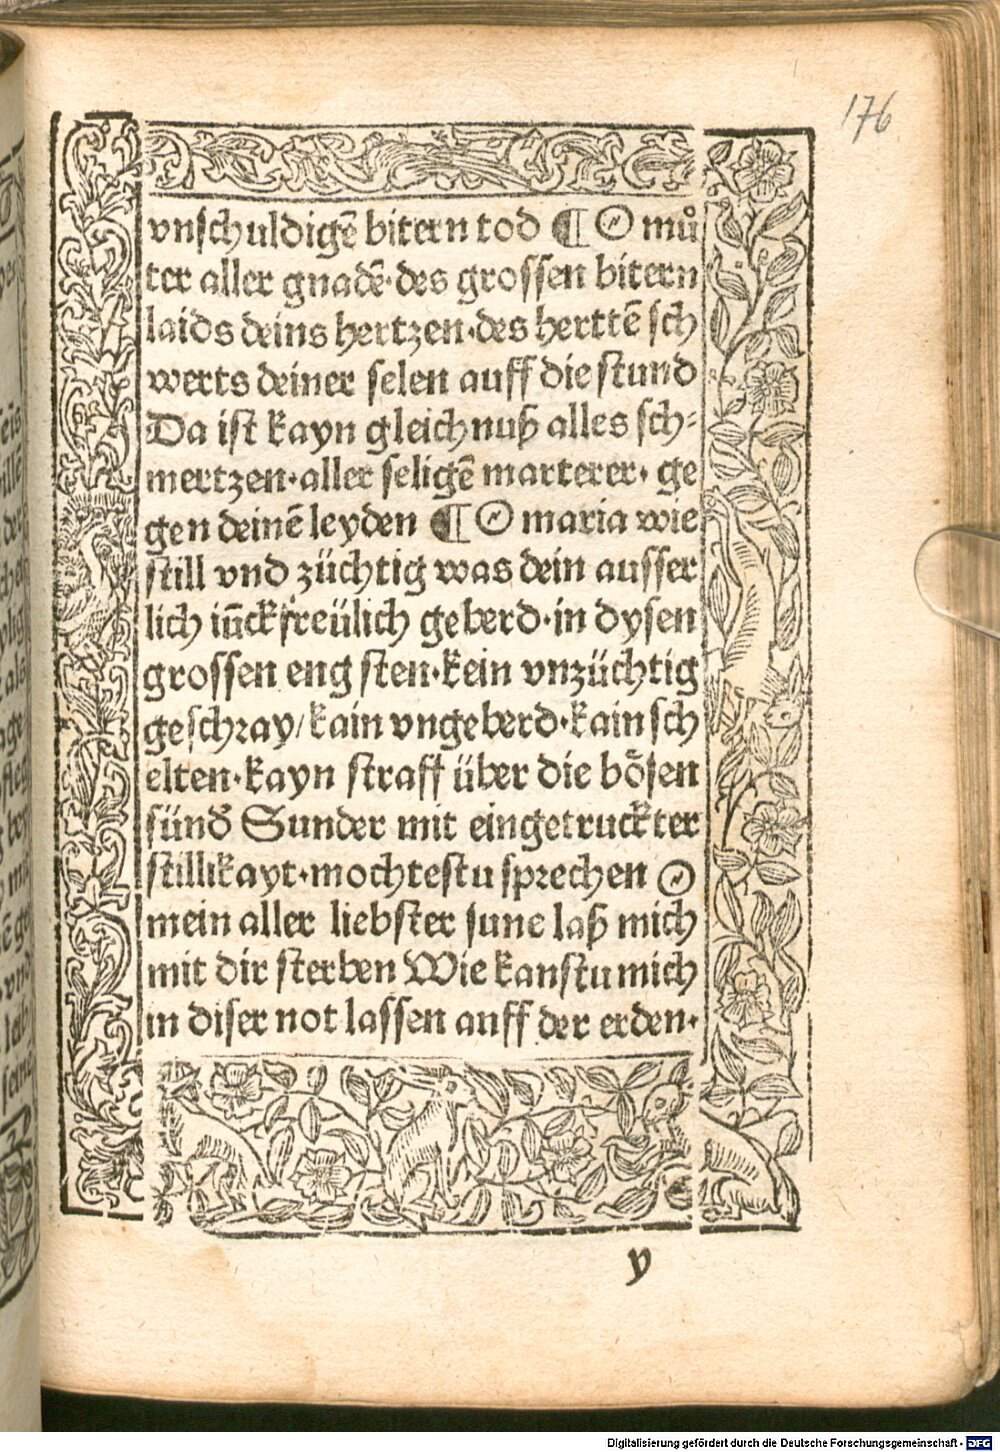 176
vnschuldigē bitern tod ¶ O muͦ
ter aller gnadē·des grossen bitern
laids deins hertzen·des herttē sch
werts deiner selen auff die stund
Da ist kayn gleichnuß alles sch⸗
mertzen·aller seligē marterer· ge
gen deinē leyden ¶ O maria wie
still vnd züchtig was dein ausser
lich iūckfreülich geberd·in dysen
grossen eng sten·kein vnzüchtig
geschray/kain vngeberd·kain sch
elten·kayn straff über die boͤsen
sünd Sunder mit eingetruckter
stillikayt·mochtestu sprechen O
mein aller liebster sune laß mich
mit dir sterben Wie kanstu mich
in diser not lassen auff der erden·
y
Digitalisierung gefördert durch die Deutsche Forschungsgemeinschaft - DFG